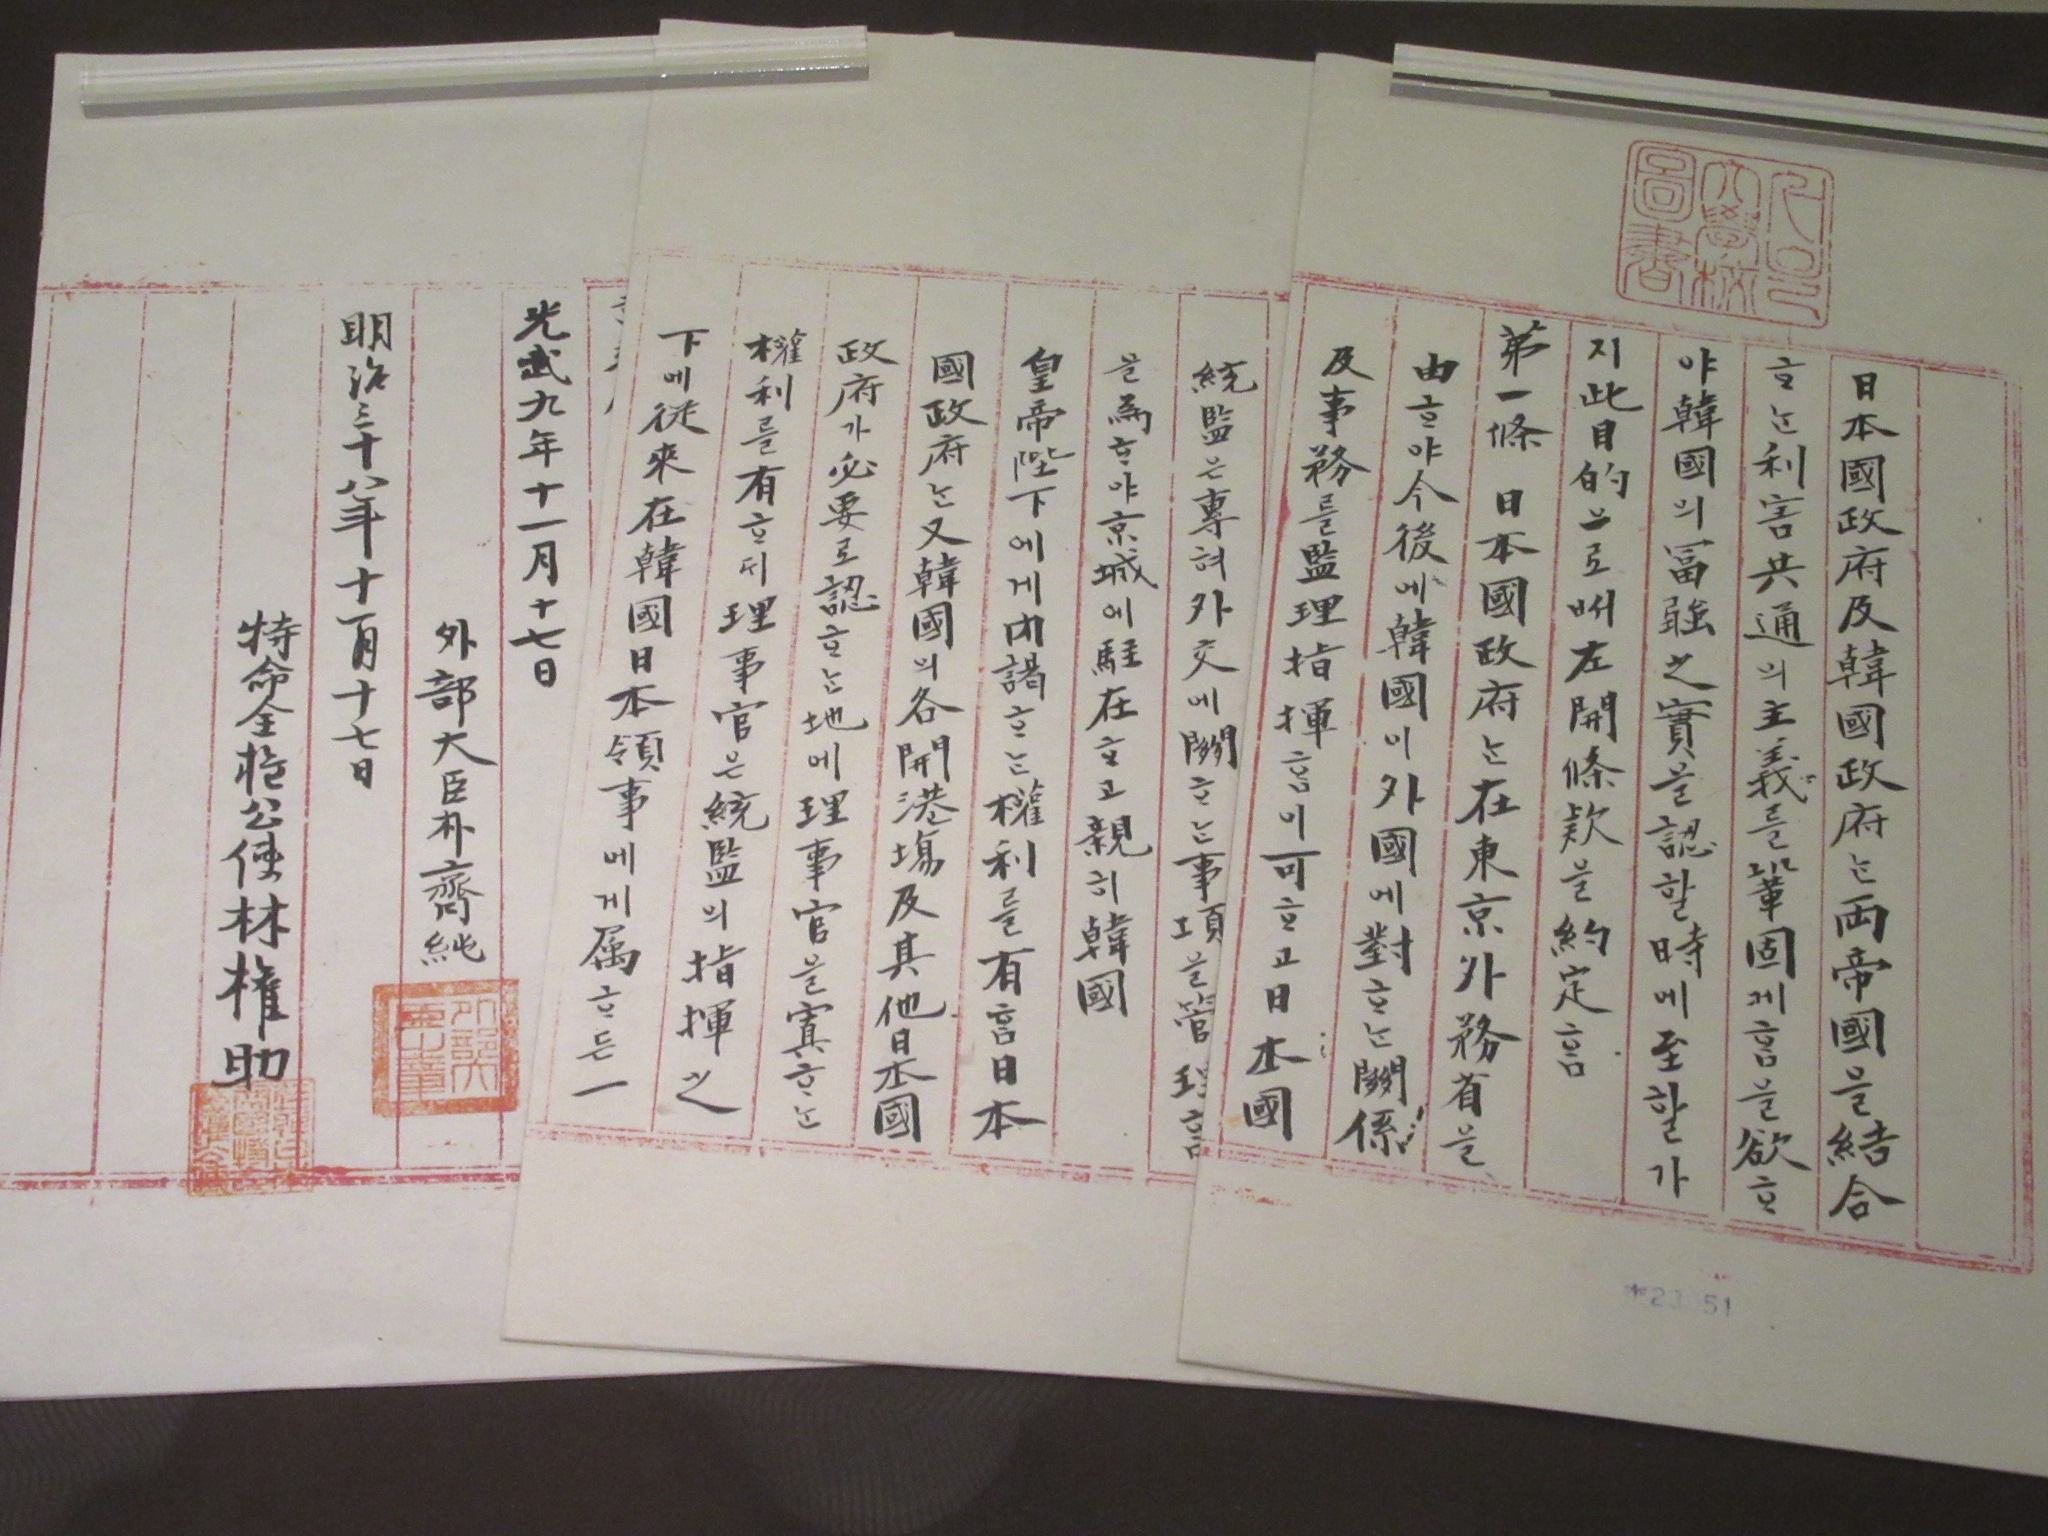 日本國政府及韓國政府는両帝國을結合
ᄒᆞ는利害共通의主義를鞏固케ᄒᆞᆷ을欲ᄒᆞ
야韓國의冨强之實을認할時에至할가
지此目的으로써左開條款을約定ᄒᆞᆷ
第一條 日本國政府는在東京外務省을
由ᄒᆞ야今後에韓國이外國에對ᄒᆞ는關係
及事務를監理指揮ᄒᆞᆷ이可ᄒᆞ고日本國
統監은專혀外交에關ᄒᆞ는事項을管理ᄒᆞᆷ
을爲ᄒᆞ야京城에駐在ᄒᆞ고親히韓國
皇帝陛下에게内謁ᄒᆞ는權利를有ᄒᆞᆷ日本
國政府는又韓國의各開港場及其他日本國
政府가必要로認ᄒᆞ는地에理事官을寘ᄒᆞ는
權利를有ᄒᆞ되理事官은統監의指揮之
下에從來在韓國日本領事에게属ᄒᆞ든一
光武九年十一月十七日
外部大臣朴齊純
明治三十八年十一月十七日
特命全権公使林権助
大學校
圖書